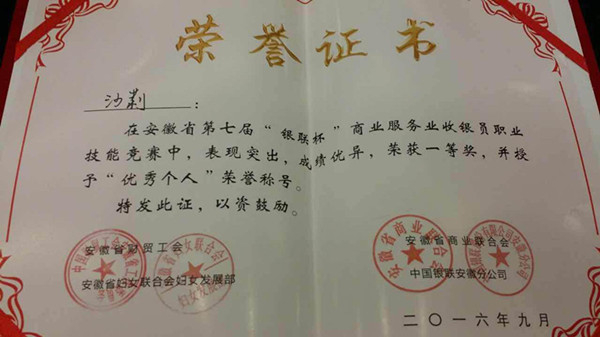 荣誉证书
沙荆：
在安徽省第七届“银联杯”商业服务业收银员职业
技能竞赛中，表现突出，成绩优异，荣获一等奖，并授
予“优秀个人”荣誉称号。
特发此证，以资鼓励。
安徽省财贸工会
安徽省妇女联合会妇女发展部
安徽省商业联合会
中国银联安徽分公司
二〇一六年九月